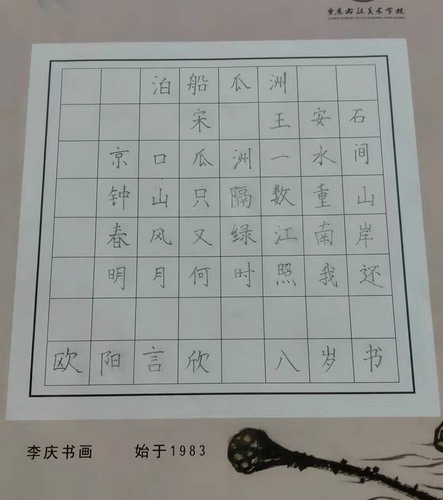 泊船瓜洲
宋 王安石
京口瓜洲一水间
钟山只隔数重山
春风又绿江南岸
明月何时照我还
欧阳言欣 八岁书
李庆书画 始于1983